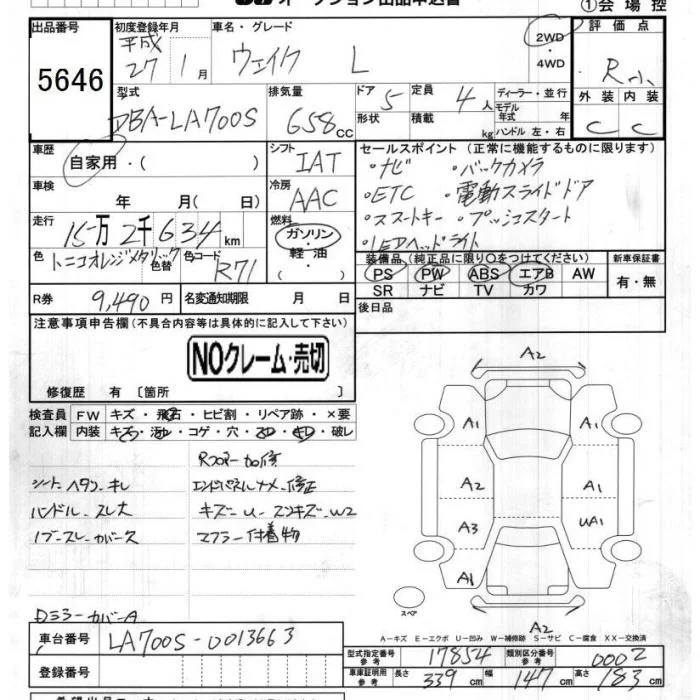 オークション出品申込書
①会場控
出品番号
5646
初度登録年月
平成
27年1月
車名・グレード
ウェイク L
2WD
・
4WD
評価点
R小
型式
DBA-LA700S
排気量
658cc
ドア 5
形状
定員 4人
積載 kg
ディーラー・並行
モデル年式 年
ハンドル 左・右
外装 内装
C C
車歴
自家用・( )
シフト
IAT
車検
年 月( 日)
冷房
AAC
走行
15万2千634km
燃料
ガソリン
軽油
・
色
トニコオレンジメタリック
色替
色コード
R71
R券 9,490円
名変通知期限 月 日
セールスポイント(正常に機能するものに限ります)
・ナビ ・バックカメラ
・ETC ・電動スライドドア
・スマートキー ・プッシュスタート
・LEDヘッドライト
装備品(純正品に限り○をつけてください)
PS PW ABS エアB AW
SR ナビ TV カワ
新車保証書
有・無
後日品
注意事項申告欄(不具合内容等は具体的に記入して下さい)
NOクレーム・売切
修復歴 有〔箇所 〕
検査員 FW キズ・飛石・ヒビ割・リペア跡・×要
記入欄 内装 キズ・汚れ・コゲ・穴・スレ・キレ・破レ
Rフロアー加修
シートヘタリ・キレ エンドパネルナメ・修正
ハンドル・スレ大 キズ・U・スリキズ・W2
ノブ・スレ・カバー欠 マフラー付着物
Dミラーカバー・A
A2
A1 A1
A2 A1
A3 UA1
A1
スペア
A2
A-キズ E-エクボ U-凹み W-補修跡 S-サビ C-腐食 XX-交換済
車台番号 LA700S-0013663
登録番号
型式指定番号 参考 17854
類別区分番号 参考 0002
車庫証明用 参考
長さ 339cm
幅 147cm
高さ 183cm